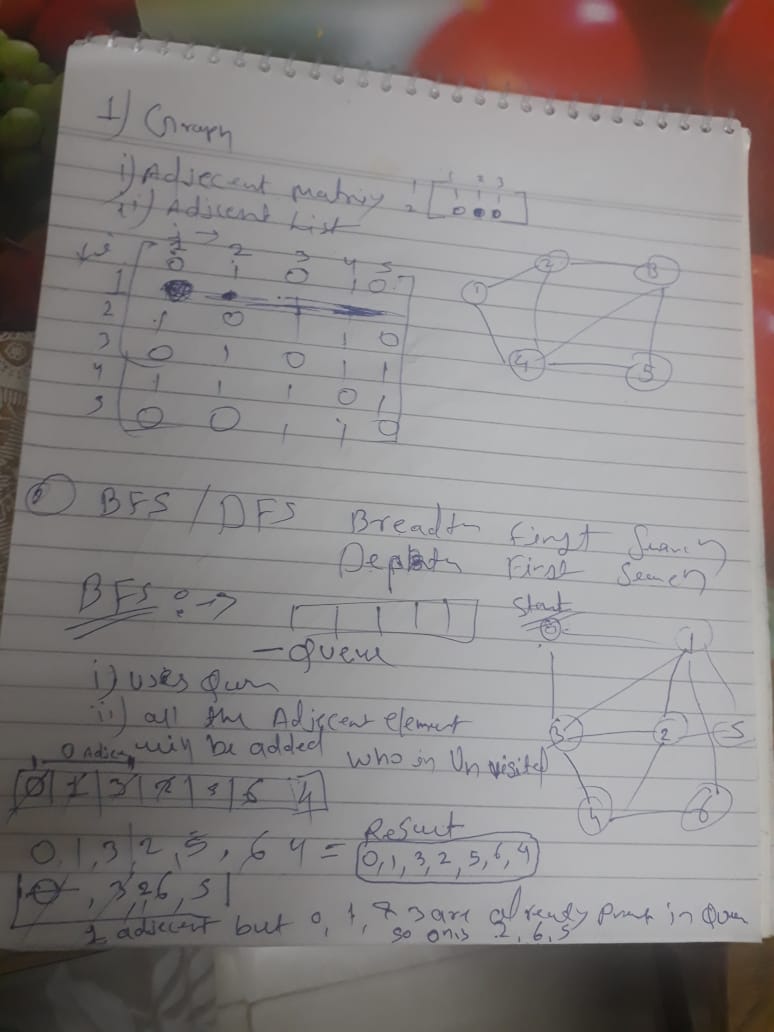 1) Graph
i) Adjecent matrix
1 2 3
1 1 1 1
2 0 0 0
ii) Adjcent List
j →
↓i 1 2 3 4 5
1 0 1 0 1 0
2 1 0 1 1 0
3 0 1 0 1 1
4 1 1 1 0 1
5 0 0 1 1 0
1 2 3 4 5
BFS / DFS Breadth First Search
Depth First Search
BFS : →
- Queue
Start
0 1 3 2 5 4 6
i) uses Queue
ii) all the Adjecent element
will be added who is Un visited
0 Adjcen
0 1 3 2 5 6 4
0, 1, 3, 2, 5, 6 4 = Result
0, 1, 3, 2, 5, 6, 4
0, 3, 2 6, 5
1 adjecent but 0, 1, & 3 are already in Queue
so only 2, 6, 5